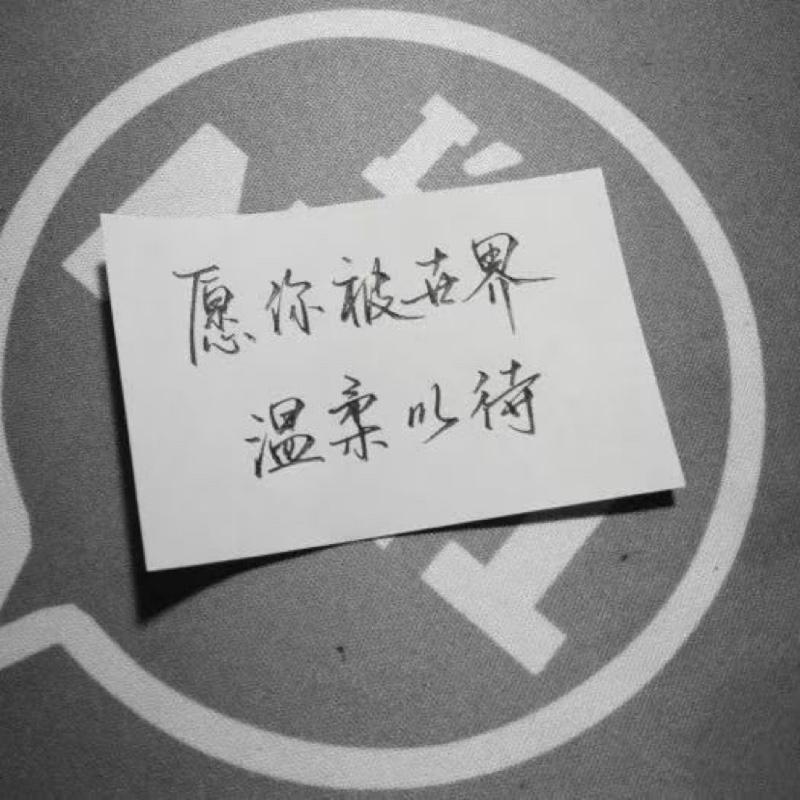 愿你被世界
温柔以待